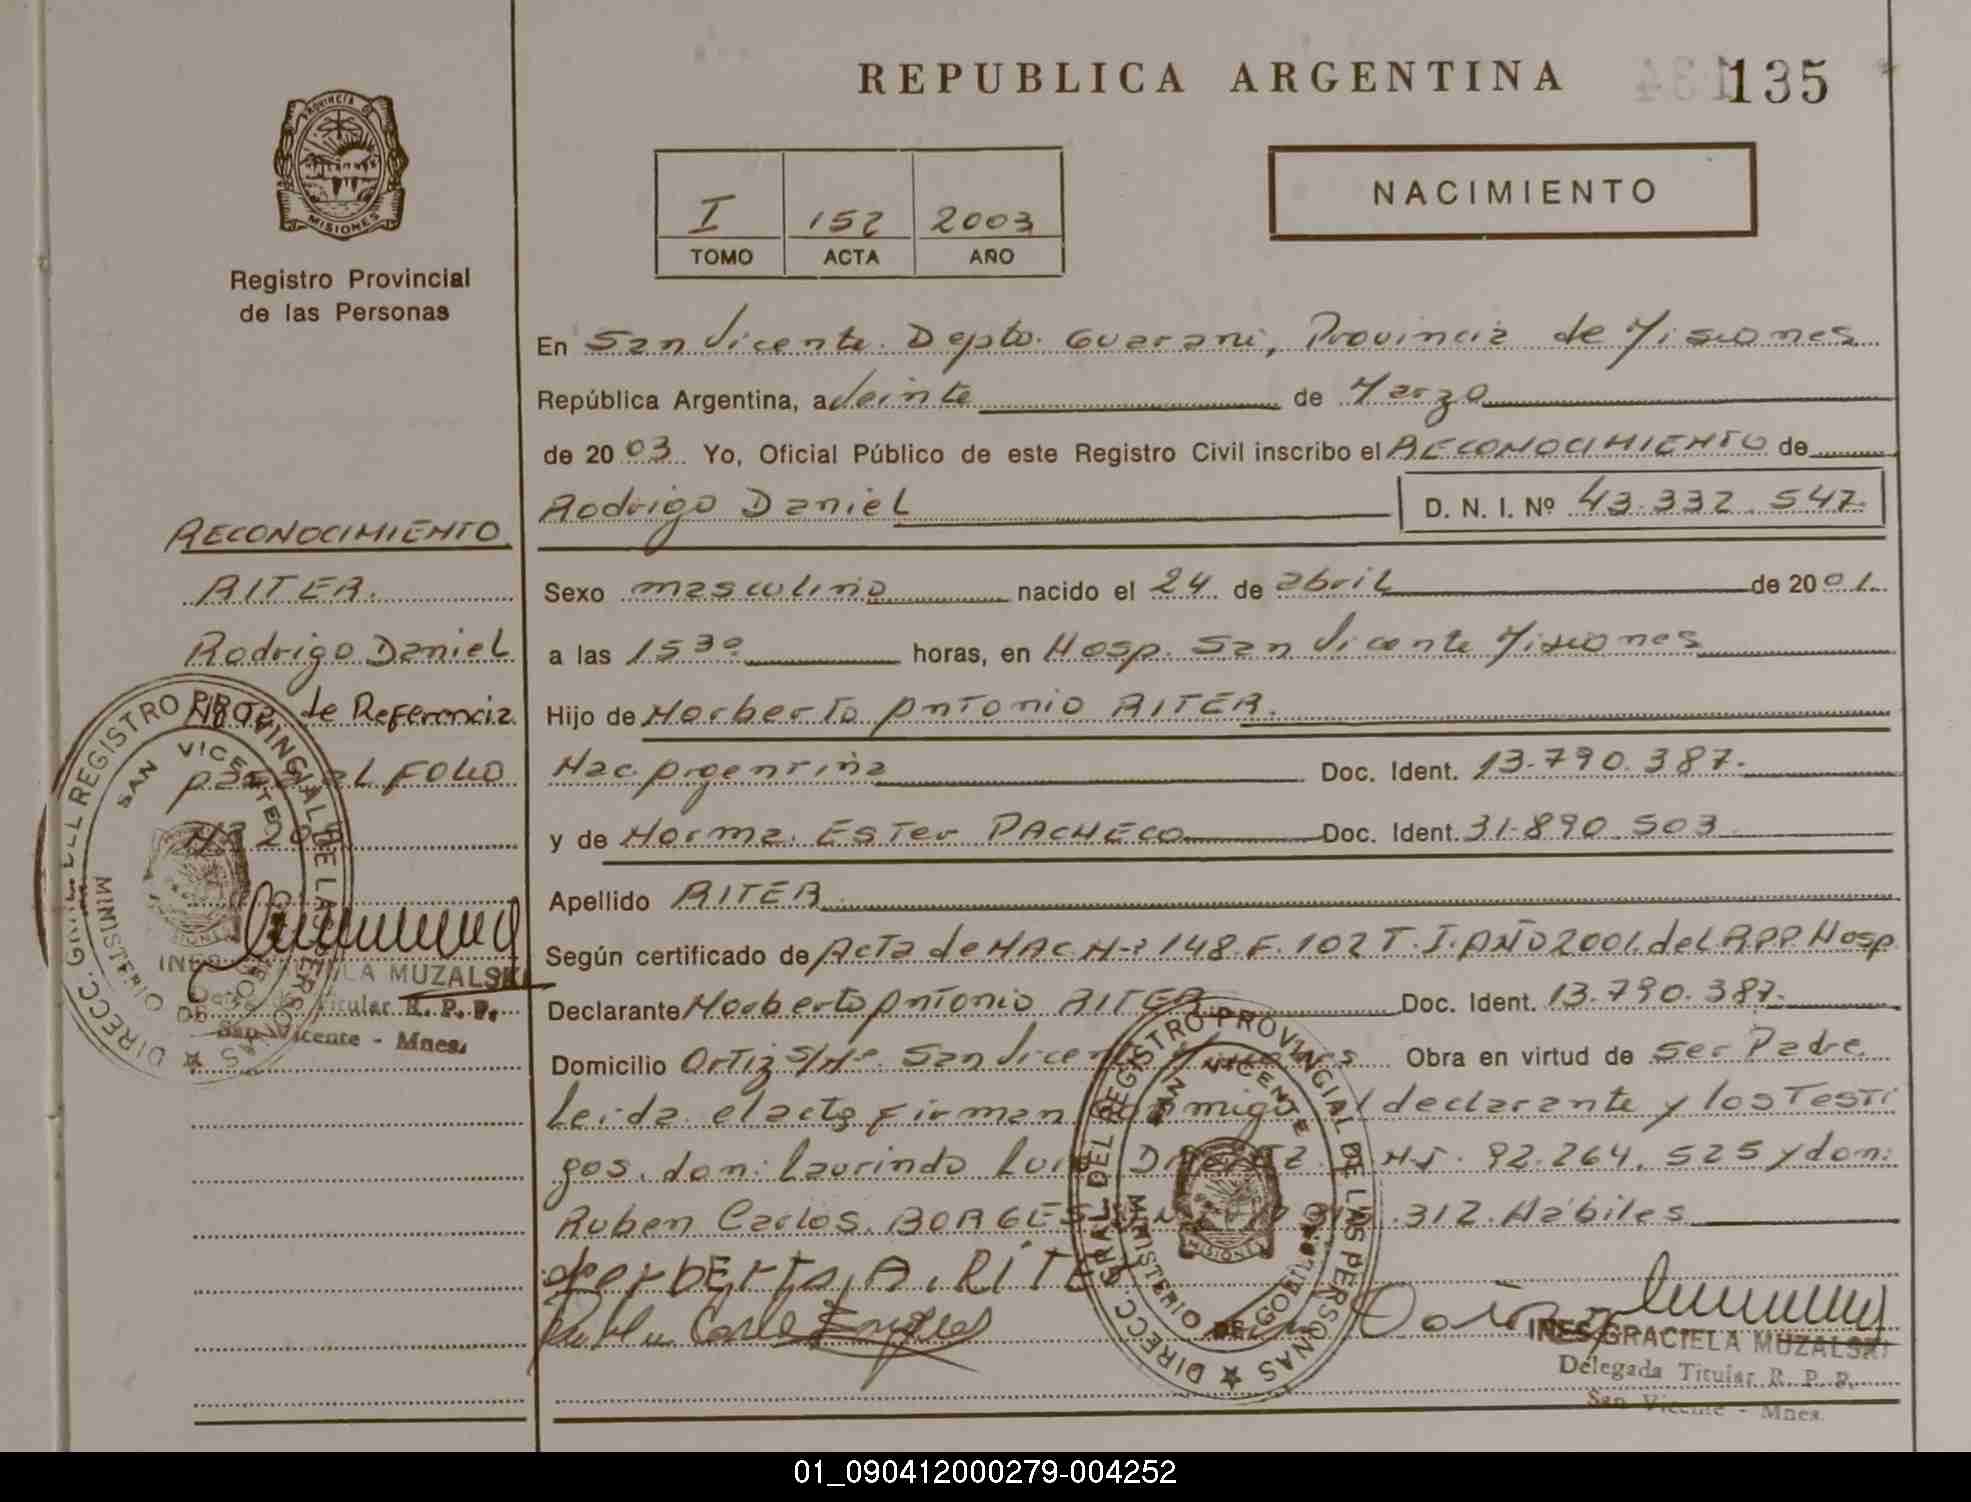 REPUBLICA ARGENTINA
135
PROVINCIA D
MISIONES
Registro Provincial
de las Personas
I 152 2003
TOMO ACTA AÑO
NACIMIENTO
En San Vicente. Depto. Guarani, Provincia de Misiones
República Argentina, a Veinte de Marzo
de 2003 Yo, Oficial Público de este Registro Civil inscribo el RECONOCIMIENTO de
Rodrigo Daniel D. N. I. Nº 43.332.547.
Sexo masculino nacido el 24 de abril de 2001.
a las 15 30 horas, en Hosp. San Vicente Misiones
Hijo de Norberto Antonio RITER.
Nac. Argentina Doc. Ident. 13.790.387.
y de Norma. Ester PACHECO Doc. Ident. 31.890.503
Apellido RITER
Según certificado de Acta de NAC Nº 148. F. 102 T. I. AÑO 2001. del RPP Hosp
Declarante Norberto Antonio RITER Doc. Ident. 13.790.387.
Domicilio Ortiz S/Nº. San Vicente Misiones Obra en virtud de ser Padre.
Leida el acta firman conmigo el declarante y los Testi
gos. don: Laurindo Luis 92.264.525 y don:
Ruben Carlos. BORGES .312. Habiles
Norberto, A. RITER
INES GRACIELA MUZALSKI
Delegada Titular R. P. P.
San Vicente - Mnes.
DIRECC. GRAL. DEL REGISTRO PROVINCIAL DE LAS PERSONAS
SAN VICENTE
MINISTERIO DE GOBIERNO
MISIONES
RECONOCIMIENTO
RITER.
Rodrigo Daniel
Nota de Referencia
pasa al FOLIO
Nº 20
DIRECC. GRAL. DEL REGISTRO PROVINCIAL DE LAS PERSONAS
SAN VICENTE
MINISTERIO DE GOBIERNO
INES GRACIELA MUZALSKI
Delegada Titular R. P. P.
San Vicente - Mnes.
01_090412000279-004252